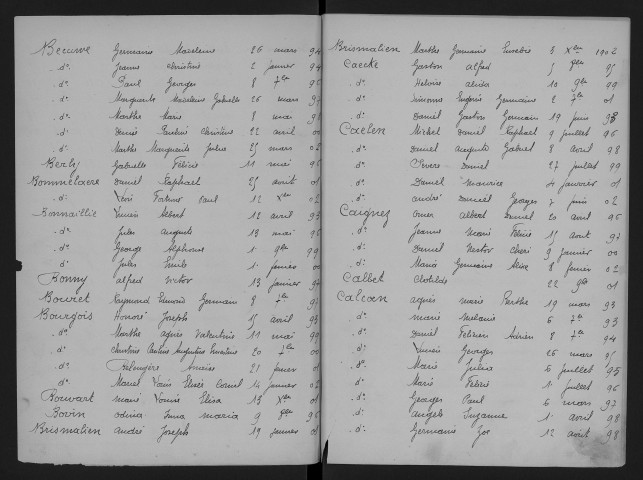 Becuwe Germaine Madeleine 26 mars 94
d° Jeanne Christine 2 janvier 94
d° Paul Georges 8 7bre 96
d° Marguerite Madeleine Gabrielle 26 mars
d° Marthe Marie 8 mai 98
d° Pauline Christine 22 avril 00
d° Marthe Marguerite Julia 25 mars 02
Berly Gabrielle Félicie 11 mai 96
Bonmelaere Daniel Raphaël 25 août 01
d° Paul 12 Xbre 02
Bonnaillie Albert 12 avril 93
d° Jules Auguste 18 mai 96
d° George Alphonse 1 9bre 99
d° Jules Emile 1 janvier 00
Bonny Alfred Victor 13 janvier
Bouret Raymond Edmond Germain 8 7bre
Bourgois Honoré Joseph 15 avril 93
d° Marthe Agnès Valentine 11 mai 99
d° 20 7bre 00
d° 21 janvier 01
d° Marcel Louis Cornil 14 janvier
Rouvart Marie Louise Elisa 13 Xbre 01
Bovin Maria 9 96
Brismalien André Joseph 19 janvier 01
Brismalien Marthe Germaine Eusébie 3 Xbre 1902
Caecke Gaston Alfred 5 9bre 95
d° Héloïse 10 9bre 99
d° Eugénie Germaine 2 7bre 01
d° Daniel Gaston Germain 19 juin 98
Caelen Michel Daniel Raphaël 9 juillet 96
d° Daniel Auguste Gabriel 8 août 98
d° Daniel 27 juillet 99
d° Daniel Maurice 4 janvier 01
d° André Daniel Georges 7 juin 02
Caignez Omer Albert Daniel 20 avril 96
d° Jeanne Marie Félicie 15 août 97
d° Daniel Nestor 9 janvier 00
d° Marie Germaine Alixe 8 janvier 02
Calbet Clotilde 22 9bre 01
Calcan Agnès Marie Berthe 19 mars 93
d° Marie Mélanie 6 7bre 93
d° Daniel Félicien Adrien 8 7bre 94
d° Georges 26 mars 95
d° Marie Julia 6 juillet 95
d° Marie 1 juillet 96
d° Georges Paul 6 mars 97
d° Angèle Suzanne 1 avril 98
d° Germaine 12 août 98